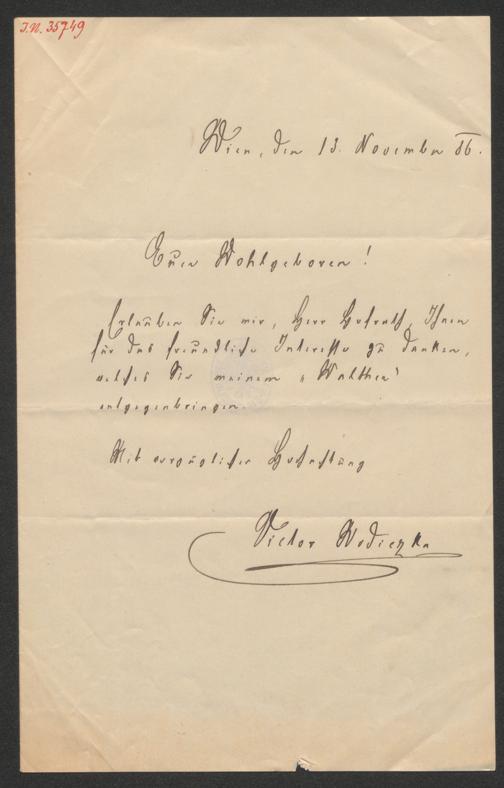 J.N. 35749
Wien, den 13. November 86.
Euer Wohlgeboren!
Erlauben Sie mir, Herr Hofrath, Ihnen
für das freundliche Interesse zu danken,
welches Sie meinem „Walther“
entgegenbringen.
Mit vorzüglicher Hochachtung
Victor Wodiczka